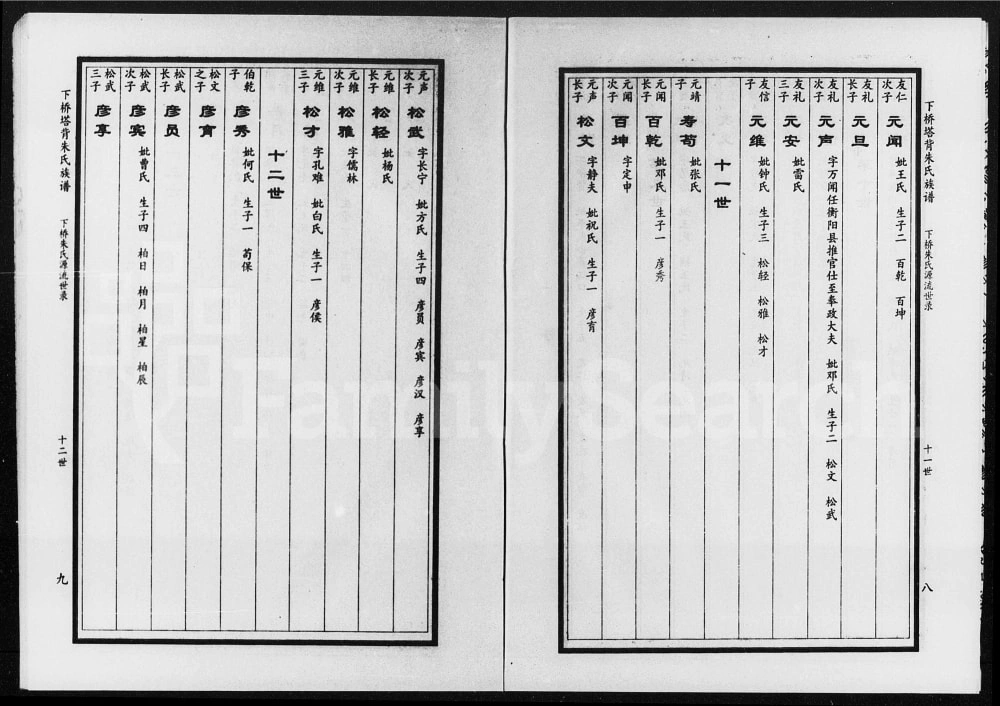 下桥塔背朱氏族谱 下桥朱氏源流世录 十一世 八
友仁次子 元闻 妣王氏 生子二 百乾 百坤
友礼长子 元旦
友礼次子 元声 字万闻任衡阳县推官仕至奉政大夫 妣邓氏 生子二 松文 松武
友礼三子 元安 妣雷氏
友信子 元维 妣钟氏 生子三 松轻 松雅 松才
十一世
元靖子 寿苟 妣张氏
元闻长子 百乾 妣邓氏 生子一 彦秀
元闻次子 百坤 字定申
元声长子 松文 字静夫 妣祝氏 生子一 彦育
元声次子 松武 字长宁 妣方氏 生子四 彦員 彦宾 彦汉 彦享
元维长子 松轻 妣杨氏
元维次子 松雅 字儒林
元维三子 松才 字孔难 妣白氏 生子一 彦侯
十二世
伯乾子 彦秀 妣何氏 生子一 苟保
松文之子 彦育
松武长子 彦员
松武次子 彦宾 妣曹氏 生子四 柏日 柏月 柏星 柏辰
松武三子 彦享
下桥塔背朱氏族谱 下桥朱氏源流世录 十二世 九
FamilySearch